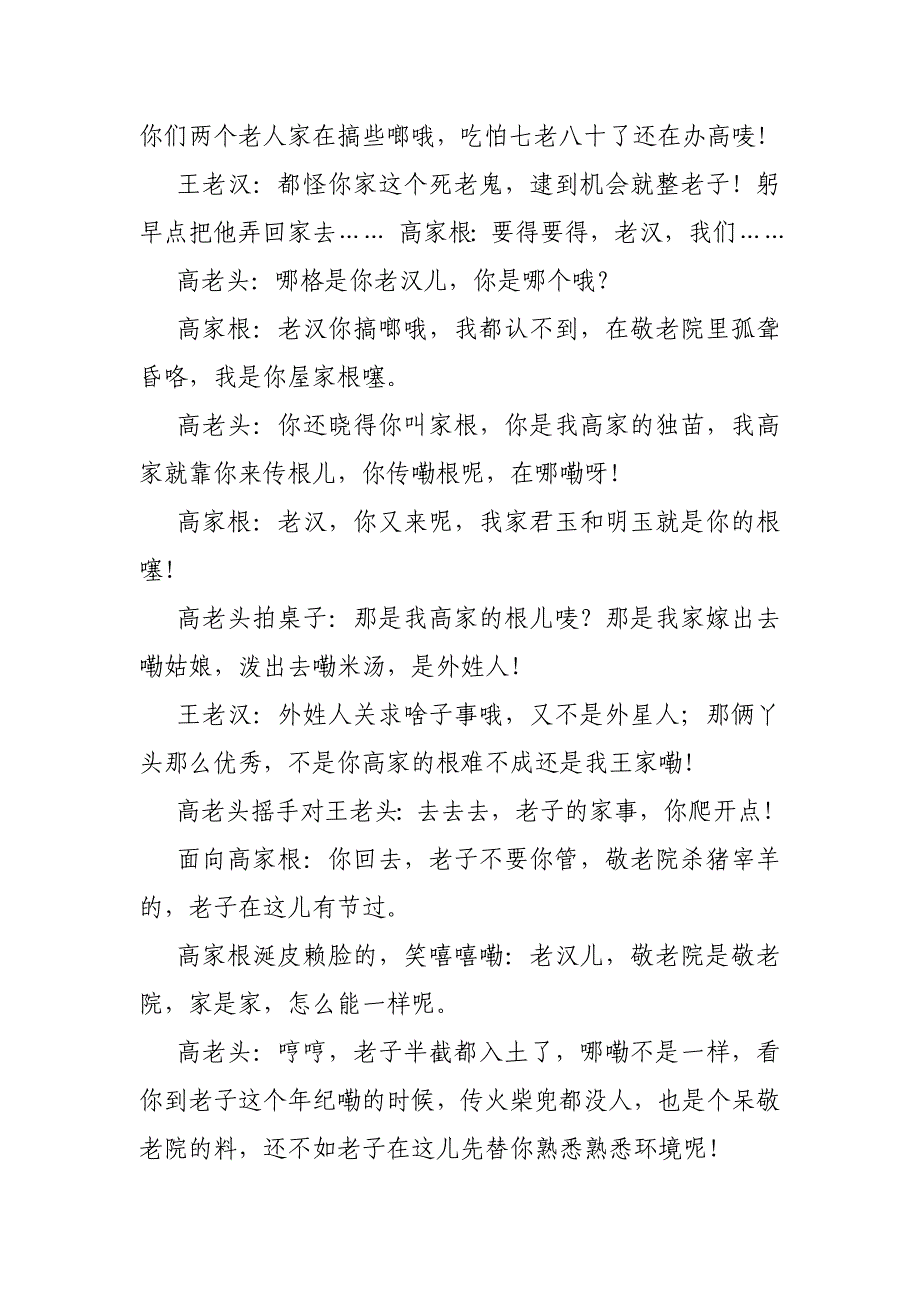 你们两个老人家在搞些啷哦，吃怕七老八十了还在办高唛！
王老汉：都怪你家这个死老鬼，逮到机会就整老子！躬
早点把他弄回家去…… 高家根：要得要得，老汉，我们……
高老头：哪格是你老汉儿，你是哪个哦？
高家根：老汉你搞啷哦，我都认不到，在敬老院里孤聋
昏咯，我是你屋家根噻。
高老头：你还晓得你叫家根，你是我高家的独苗，我高
家就靠你来传根儿，你传嘞根呢，在哪嘞呀！
高家根：老汉，你又来呢，我家君玉和明玉就是你的根
噻！
高老头拍桌子：那是我高家的根儿唛？那是我家嫁出去
嘞姑娘，泼出去嘞米汤，是外姓人！
王老汉：外姓人关求啥子事哦，又不是外星人；那俩丫
头那么优秀，不是你高家的根难不成还是我王家嘞！
高老头摇手对王老头：去去去，老子的家事，你爬开点！
面向高家根：你回去，老子不要你管，敬老院杀猪宰羊
的，老子在这儿有节过。
高家根涎皮赖脸的，笑嘻嘻嘞：老汉儿，敬老院是敬老
院，家是家，怎么能一样呢。
高老头：哼哼，老子半截都入土了，哪嘞不是一样，看
你到老子这个年纪嘞的时候，传火柴兜都没人，也是个呆敬
老院的料，还不如老子在这儿先替你熟悉熟悉环境呢！